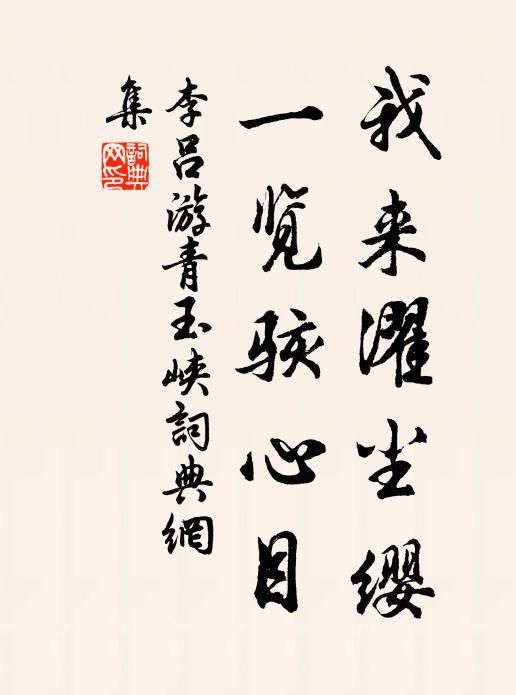 我来濯尘缨
一览骇心目
李吕游青玉峡詞典網
集
詞典网印